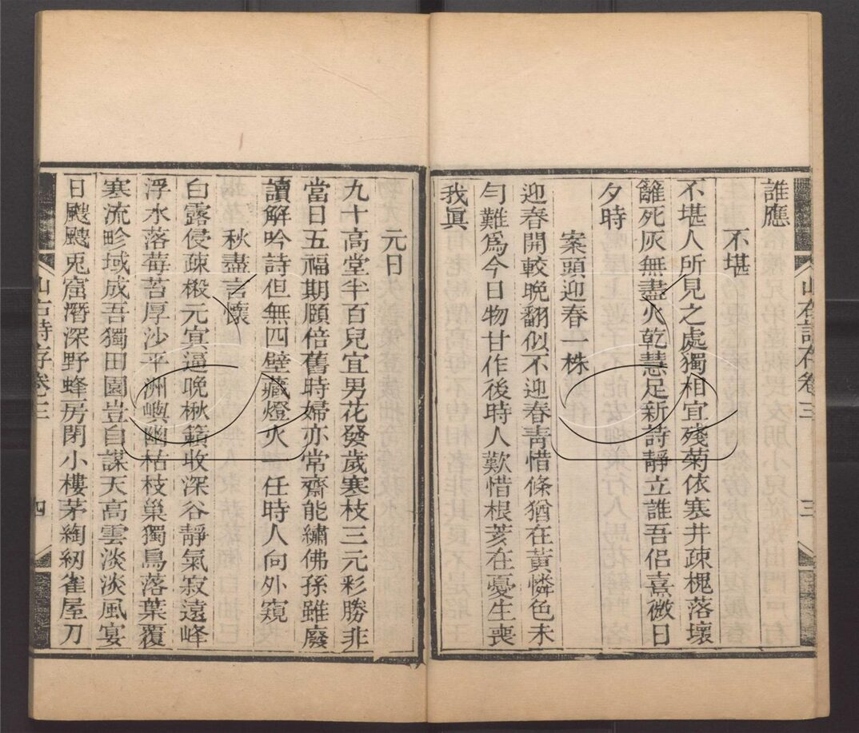 誰應
不堪
不堪人所見之處獨相宜殘菊依寒井疎槐落壞
籬死灰無盡火乾慧足新詩靜立誰吾侶熹微日
夕時
案頭迎春一株
迎春開較晚翻似不迎春靑惜條猶在黃憐色未
勻難爲今日物甘作後時人歎惜根荄在憂生喪
我眞
山右詩存卷三 三
元日
九十高堂半百兒宜男花發歲寒枝三元彩勝非
當日五福期願倍舊時婦亦常齋能繡佛孫雖廢
讀解吟詩但無四壁藏燈火 任時人向外窺
秋盡言懷
白露侵疎椴元宜逼晚楸籟收深谷靜氣寂遠峰
浮水落莓苔厚沙平洲嶼幽枯枝巢獨鳥落葉覆
寒流畛域成吾獨田園豈自謀天高雲淡淡風宴
日颸颸兎窟潛深野蜂房閉小樓茅綯紉雀屋刀
山右詩存卷三 四